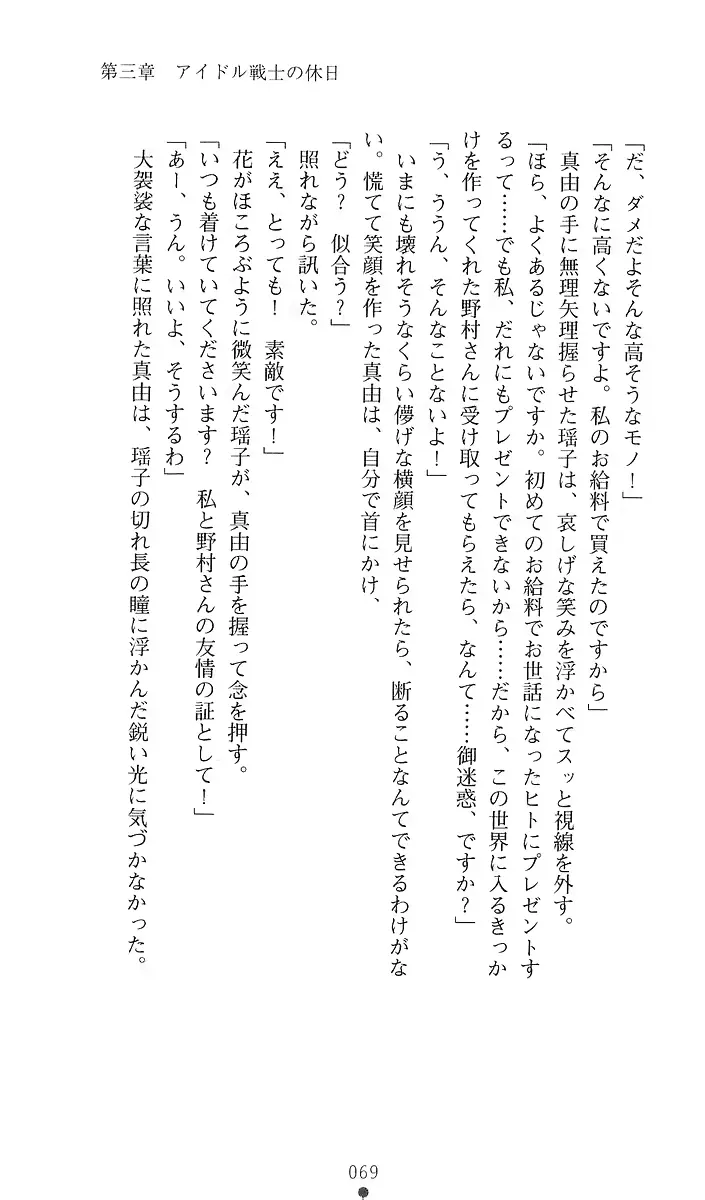 第三章　アイドル戦士の休日
「だ、ダメだよそんな高そうなモノ！」
「そんなに高くないですよ。私のお給料で買えたのですから」
　真由の手に無理矢理握らせた瑶子は、哀しげな笑みを浮かべてスッと視線を外す。
「ほら、よくあるじゃないですか。初めてのお給料でお世話になったヒトにプレゼントす
るって……でも私、だれにもプレゼントできないから……だから、この世界に入るきっか
けを作ってくれた野村さんに受け取ってもらえたら、なんて……御迷惑、ですか？」
「う、ううん、そんなことないよ！」
　いまにも壊れそうなくらい儚げな横顔を見せられたら、断ることなんてできるわけがな
い。慌てて笑顔を作った真由は、自分で首にかけ、
「どう？　似合う？」
　照れながら訊いた。
「ええ、とっても！　素敵です！」
　花がほころぶように微笑んだ瑶子が、真由の手を握って念を押す。
「いつも着けていてくださいます？　私と野村さんの友情の証として！」
「あー、うん。いいよ、そうするわ」
　大袈裟な言葉に照れた真由は、瑶子の切れ長の瞳に浮かんだ鋭い光に気づかなかった。
069